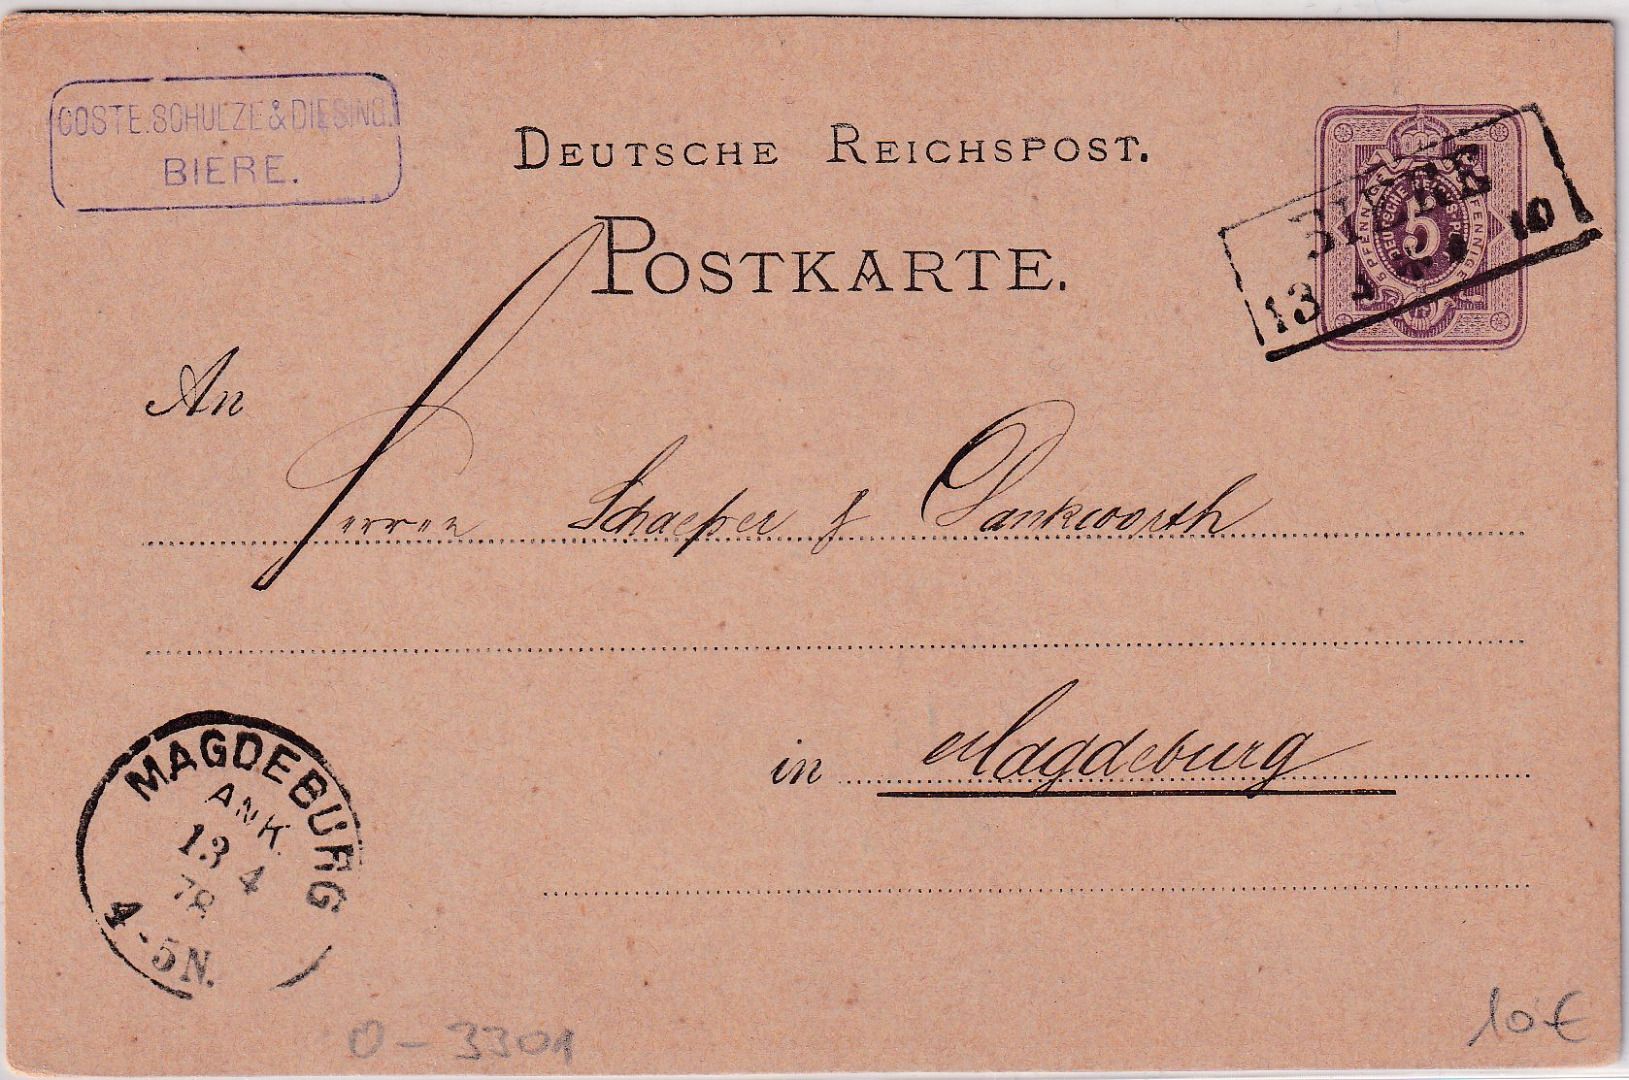 COSTE.SCHULZE & DIESING.
BIERE.
DEUTSCHE REICHSPOST.
POSTKARTE.
5 PFENNIGE
DEUTSCHE REICHS-POST
5
PFENNIGE
BIERE
13 4 10
An
Herren Schaeper & Dankworth
in Magdeburg
MAGDEBURG
ANK.
13 4
78
4-5N.
O-3301
10€